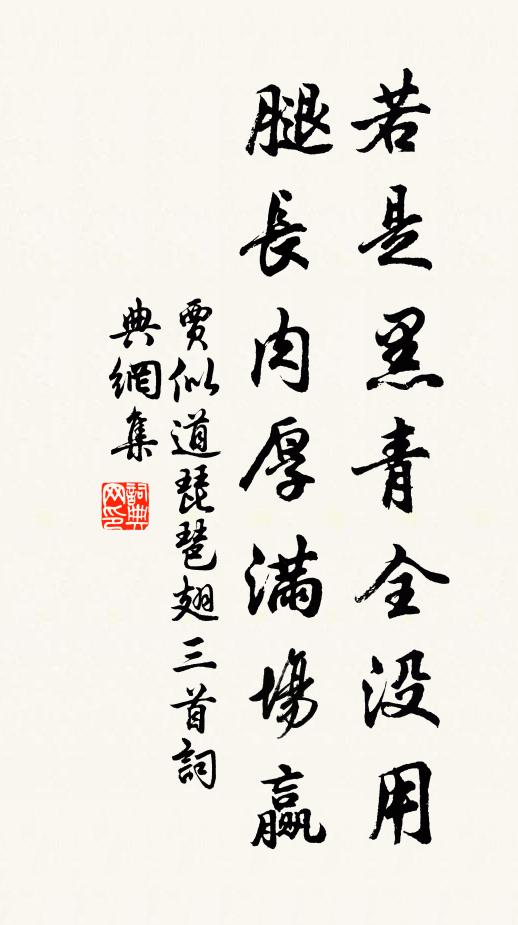 若是黑青全没用
腿長肉厚滿場贏
賈似道琵琶翅三首詞
典網集
詞典
网印